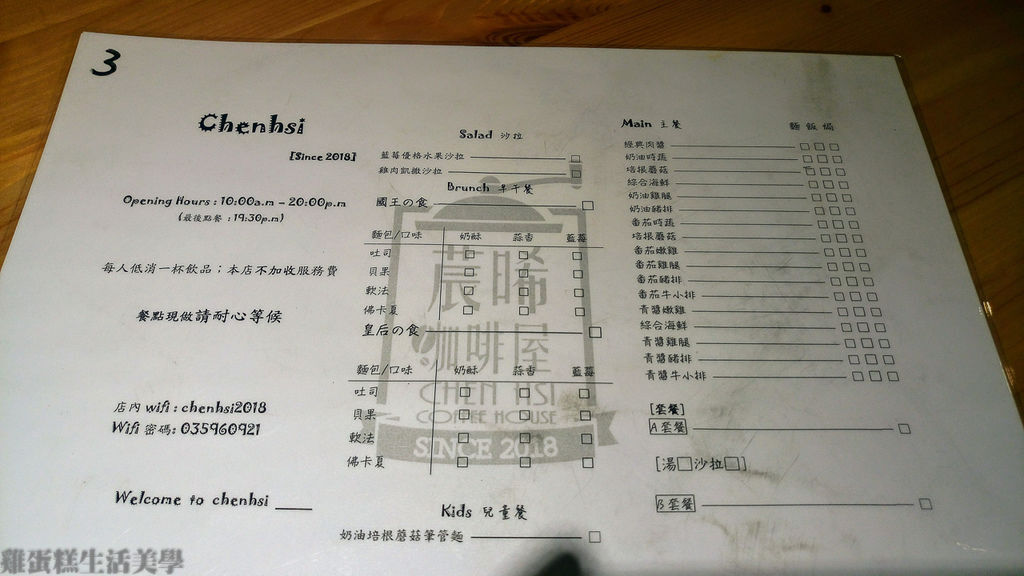 3
Chenhsi
[Since 2018]
Opening Hours : 10:00a.m – 20:00p.m
(最後點餐 : 19:30p.m)
每人低消一杯飲品；本店不加收服務費
餐點現做請耐心等候
店內 wifi : chenhsi2018
Wifi 密碼: 035960921
Welcome to chenhsi
Salad 沙拉
藍莓優格水果沙拉
雞肉凱撒沙拉
Brunch 早午餐
國王の食
麵包/口味 奶酥 蒜香 藍莓
吐司
貝果
軟法
佛卡夏
皇后の食
麵包/口味 奶酥 蒜香 藍莓
吐司
貝果
軟法
佛卡夏
Kids 兒童餐
奶油培根蘑菇筆管麵
晨晞
咖啡屋
CHEN HSI
COFFEE HOUSE
SINCE 2018
Main 主餐 麵 飯 焗
經典肉醬
奶油時蔬
培根蘑菇
綜合海鮮
奶油雞腿
奶油豬排
番茄時蔬
培根蘑菇
番茄嫩雞
番茄雞腿
番茄豬排
番茄牛小排
青醬嫩雞
綜合海鮮
青醬雞腿
青醬豬排
青醬牛小排
[套餐]
A套餐
[湯□沙拉□]
B套餐
雞蛋糕生活美學